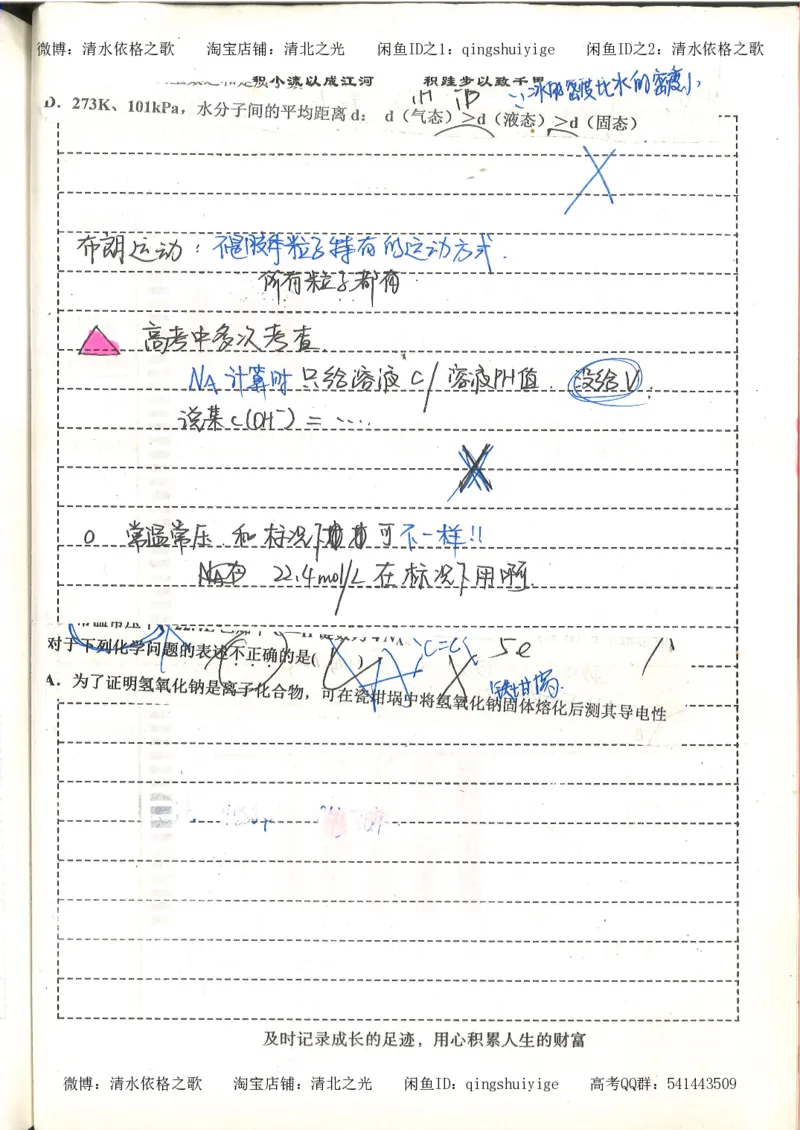 微博：清水依格之歌 淘宝店铺：清北之光 闲鱼ID之1：qingshuiyige 闲鱼ID之2：清水依格之歌
积小流以成江河 积跬步以致千里
∵冰的密度比水的密度小
D．273K、101kPa，水分子间的平均距离 d： d（气态）>d（液态）>d（固态）
布朗运动：不是胶体粒子特有的运动方式.
所有粒子都有
高考中多次考查
NA计算时 只给溶液 C/溶液PH值 没给V.
说某c(OH⁻) = ....
常温常压 和 标况下 可不一样!!
22.4mol/L 在标况下用啊.
对于下列化学问题的表述不正确的是( )
C=C 5e
A．为了证明氢氧化钠是离子化合物，可在瓷坩埚中将氢氧化钠固体熔化后测其导电性
铁坩埚.
及时记录成长的足迹，用心积累人生的财富
微博：清水依格之歌 淘宝店铺：清北之光 闲鱼ID：qingshuiyige 高考QQ群：541443509